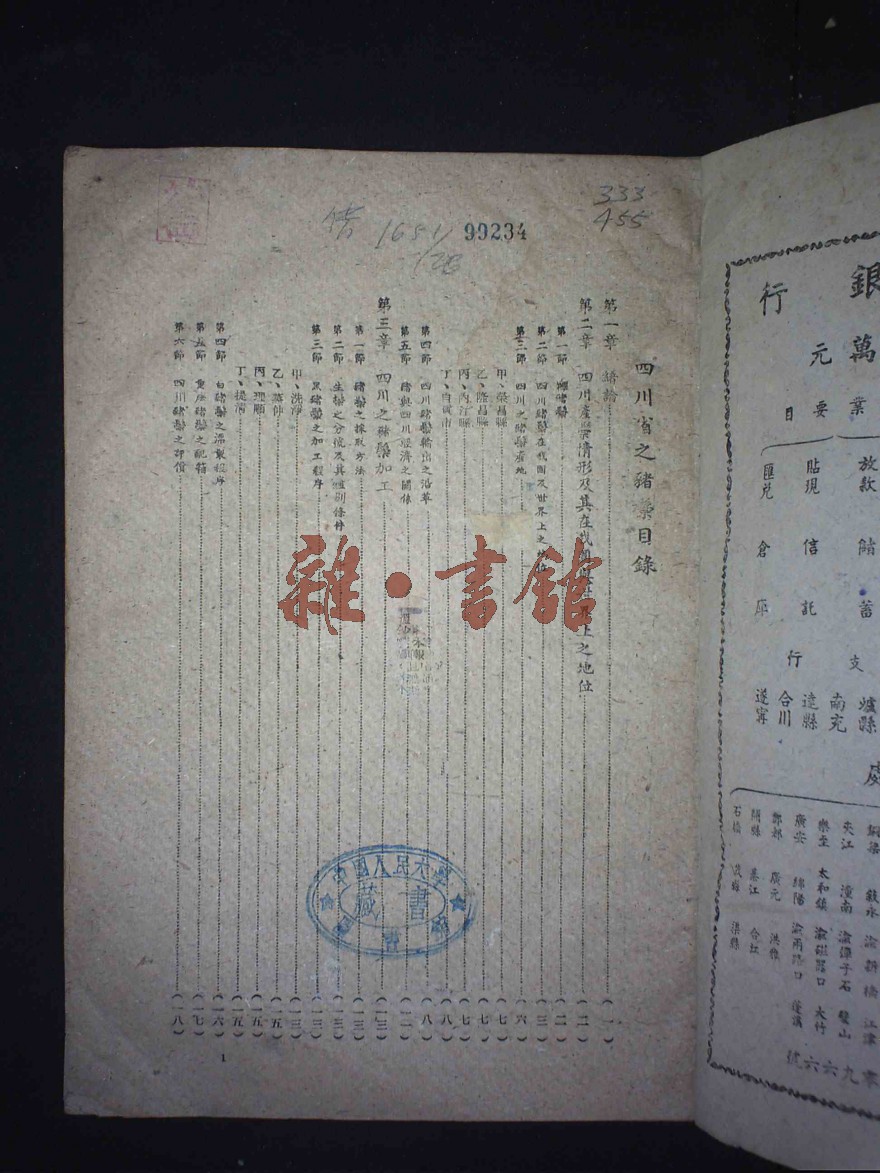 333
455
1651
99234
四川省之豬鬃目錄
第一章 緒論 (一)
第二章 四川產鬃情形及其在我國與世界上之地位 (二)
第一節 (二)
第二節 四川豬鬃在我國及世界上之地位 (三)
第三節 四川之豬鬃產地 (六)
甲、榮昌縣 (七)
乙、隆昌縣 (七)
丙、內江縣 (七)
丁、自貢市 (八)
第四節 四川豬鬃輸出之沿革 (八)
第五節 豬與四川經濟之關係 (一二)
第三章 四川之豬鬃加工 (一三)
第一節 豬鬃之採取方法 (一三)
第二節 生鬃之分號及其鑑別條件 (一三)
第三節 黑豬鬃之加工程序 (一三)
甲、洗淨 (一三)
乙、蒸伸 (一五)
丙、理順 (一五)
丁、提清 (一五)
第四節 白豬鬃之漂製程序 (一六)
第五節 豬鬃之配箱 (一七)
第六節 四川豬鬃之市價 (一八)
1
雜·書館
藏書
銀
行
萬
元
業
要
目
放款 儲蓄
貼現 信託
匯兌 倉庫
支
行
處
瀘縣
南充
達縣
合川
遂寧
夾江 潼南 璧山
樂至 太和鎮 渝磁器口 大竹
廣安 綿陽 渝兩路口 蓬溪
酆都 廣元 洪雅
開縣 綦江 合江
石橋 渠縣
江津
零九六六號